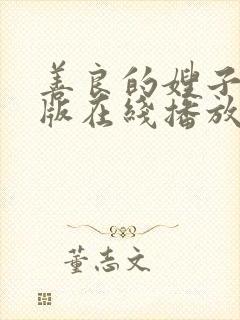 善良的嫂子
版在线播放
董志文